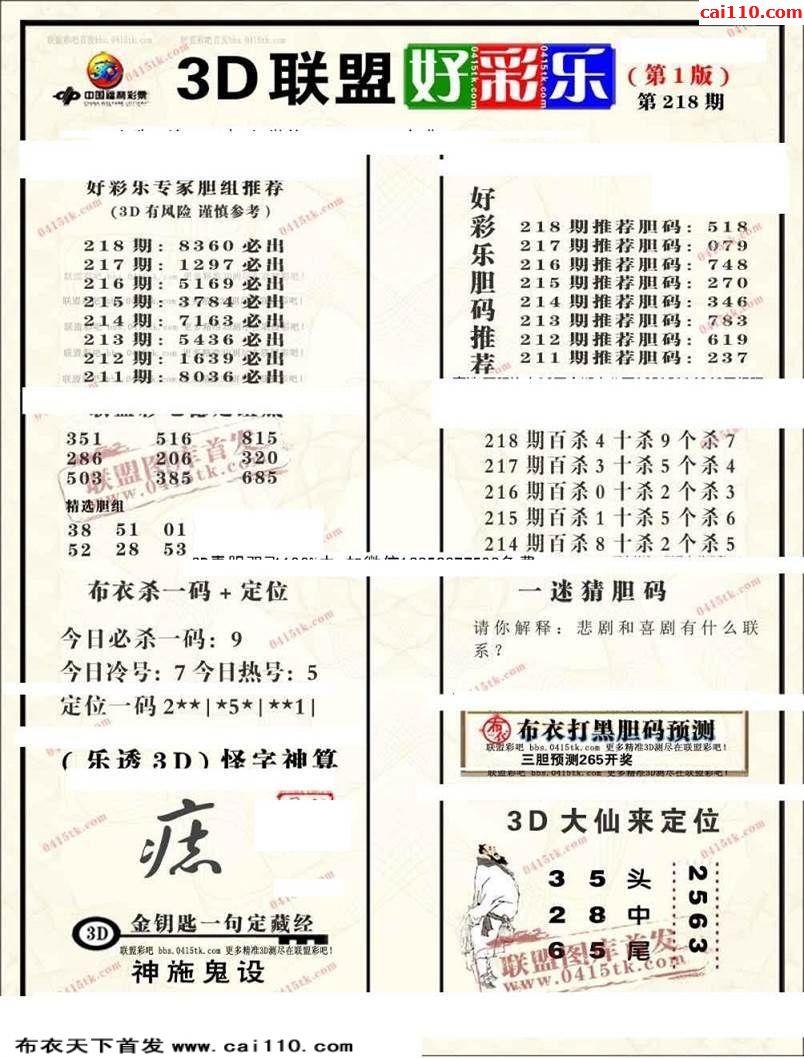 cai110.com
联盟彩吧首发bbs.0415tk.com
中国福利彩票
CHINA WELFARE LOTTERY
3D联盟好彩乐
(第1版)
第218期
好彩乐专家胆组推荐
(3D有风险 谨慎参考)
218期: 8360必出
217期: 1297必出
216期: 5169必出
215期: 3784必出
214期: 7163必出
213期: 5436必出
212期: 1639必出
211期: 8036必出
好彩乐胆码推荐
218期推荐胆码: 518
217期推荐胆码: 079
216期推荐胆码: 748
215期推荐胆码: 270
214期推荐胆码: 346
213期推荐胆码: 783
212期推荐胆码: 619
211期推荐胆码: 237
351 516 815
286 206 320
503 385 685
精选胆组
38 51 01
52 28 53
联盟图库首发
www.0415tk.com
218期百杀4十杀9个杀7
217期百杀3十杀5个杀4
216期百杀0十杀2个杀3
215期百杀1十杀5个杀6
214期百杀8十杀2个杀5
布衣杀一码+定位
今日必杀一码: 9
今日冷号: 7 今日热号: 5
定位一码2**|*5*|**1|
一迷猜胆码
请你解释: 悲剧和喜剧有什么联
系?
布衣打黑胆码预测
联盟彩吧 bbs.0415tk.com 更多精准3D测尽在联盟彩吧!
三胆预测265开奖
(乐透3D)怪字神算
痣
3D 金钥匙一句定藏经
联盟彩吧 bbs.0415tk.com 更多精准3D测尽在联盟彩吧!
神施鬼设
3D大仙来定位
3 5 头
2 8 中
6 5 尾
2563
联盟图库首发
www.0415tk.com
布衣天下首发 www.cai110.com